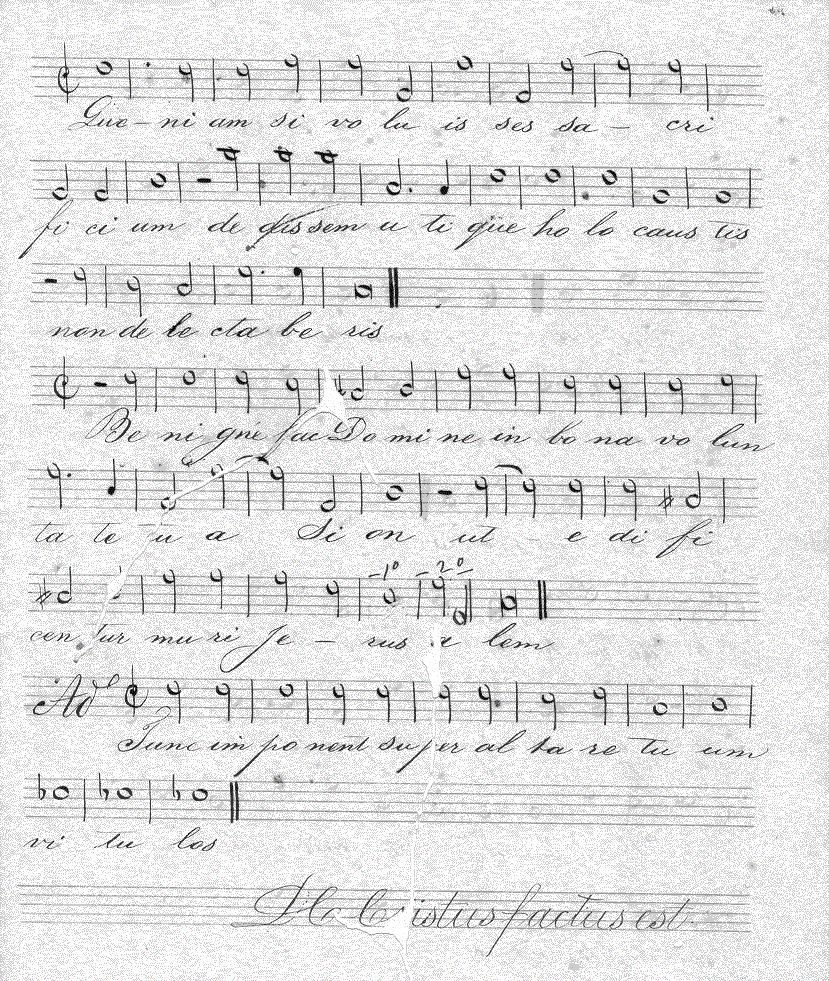 Quo - ni am si vo lu is ses sa - cri
fi ci um de dis sem u ti que ho lo caus tis
non de le cta be ris
Be ni gne fac Do mi ne in bo na vo lun
ta te tu a Si on ut - e di fi
1º 2º
cen tur mu ri Je - rus a lem
Adº
Tunc im po nent super al ta re tu um
vi tu los
istus factus est